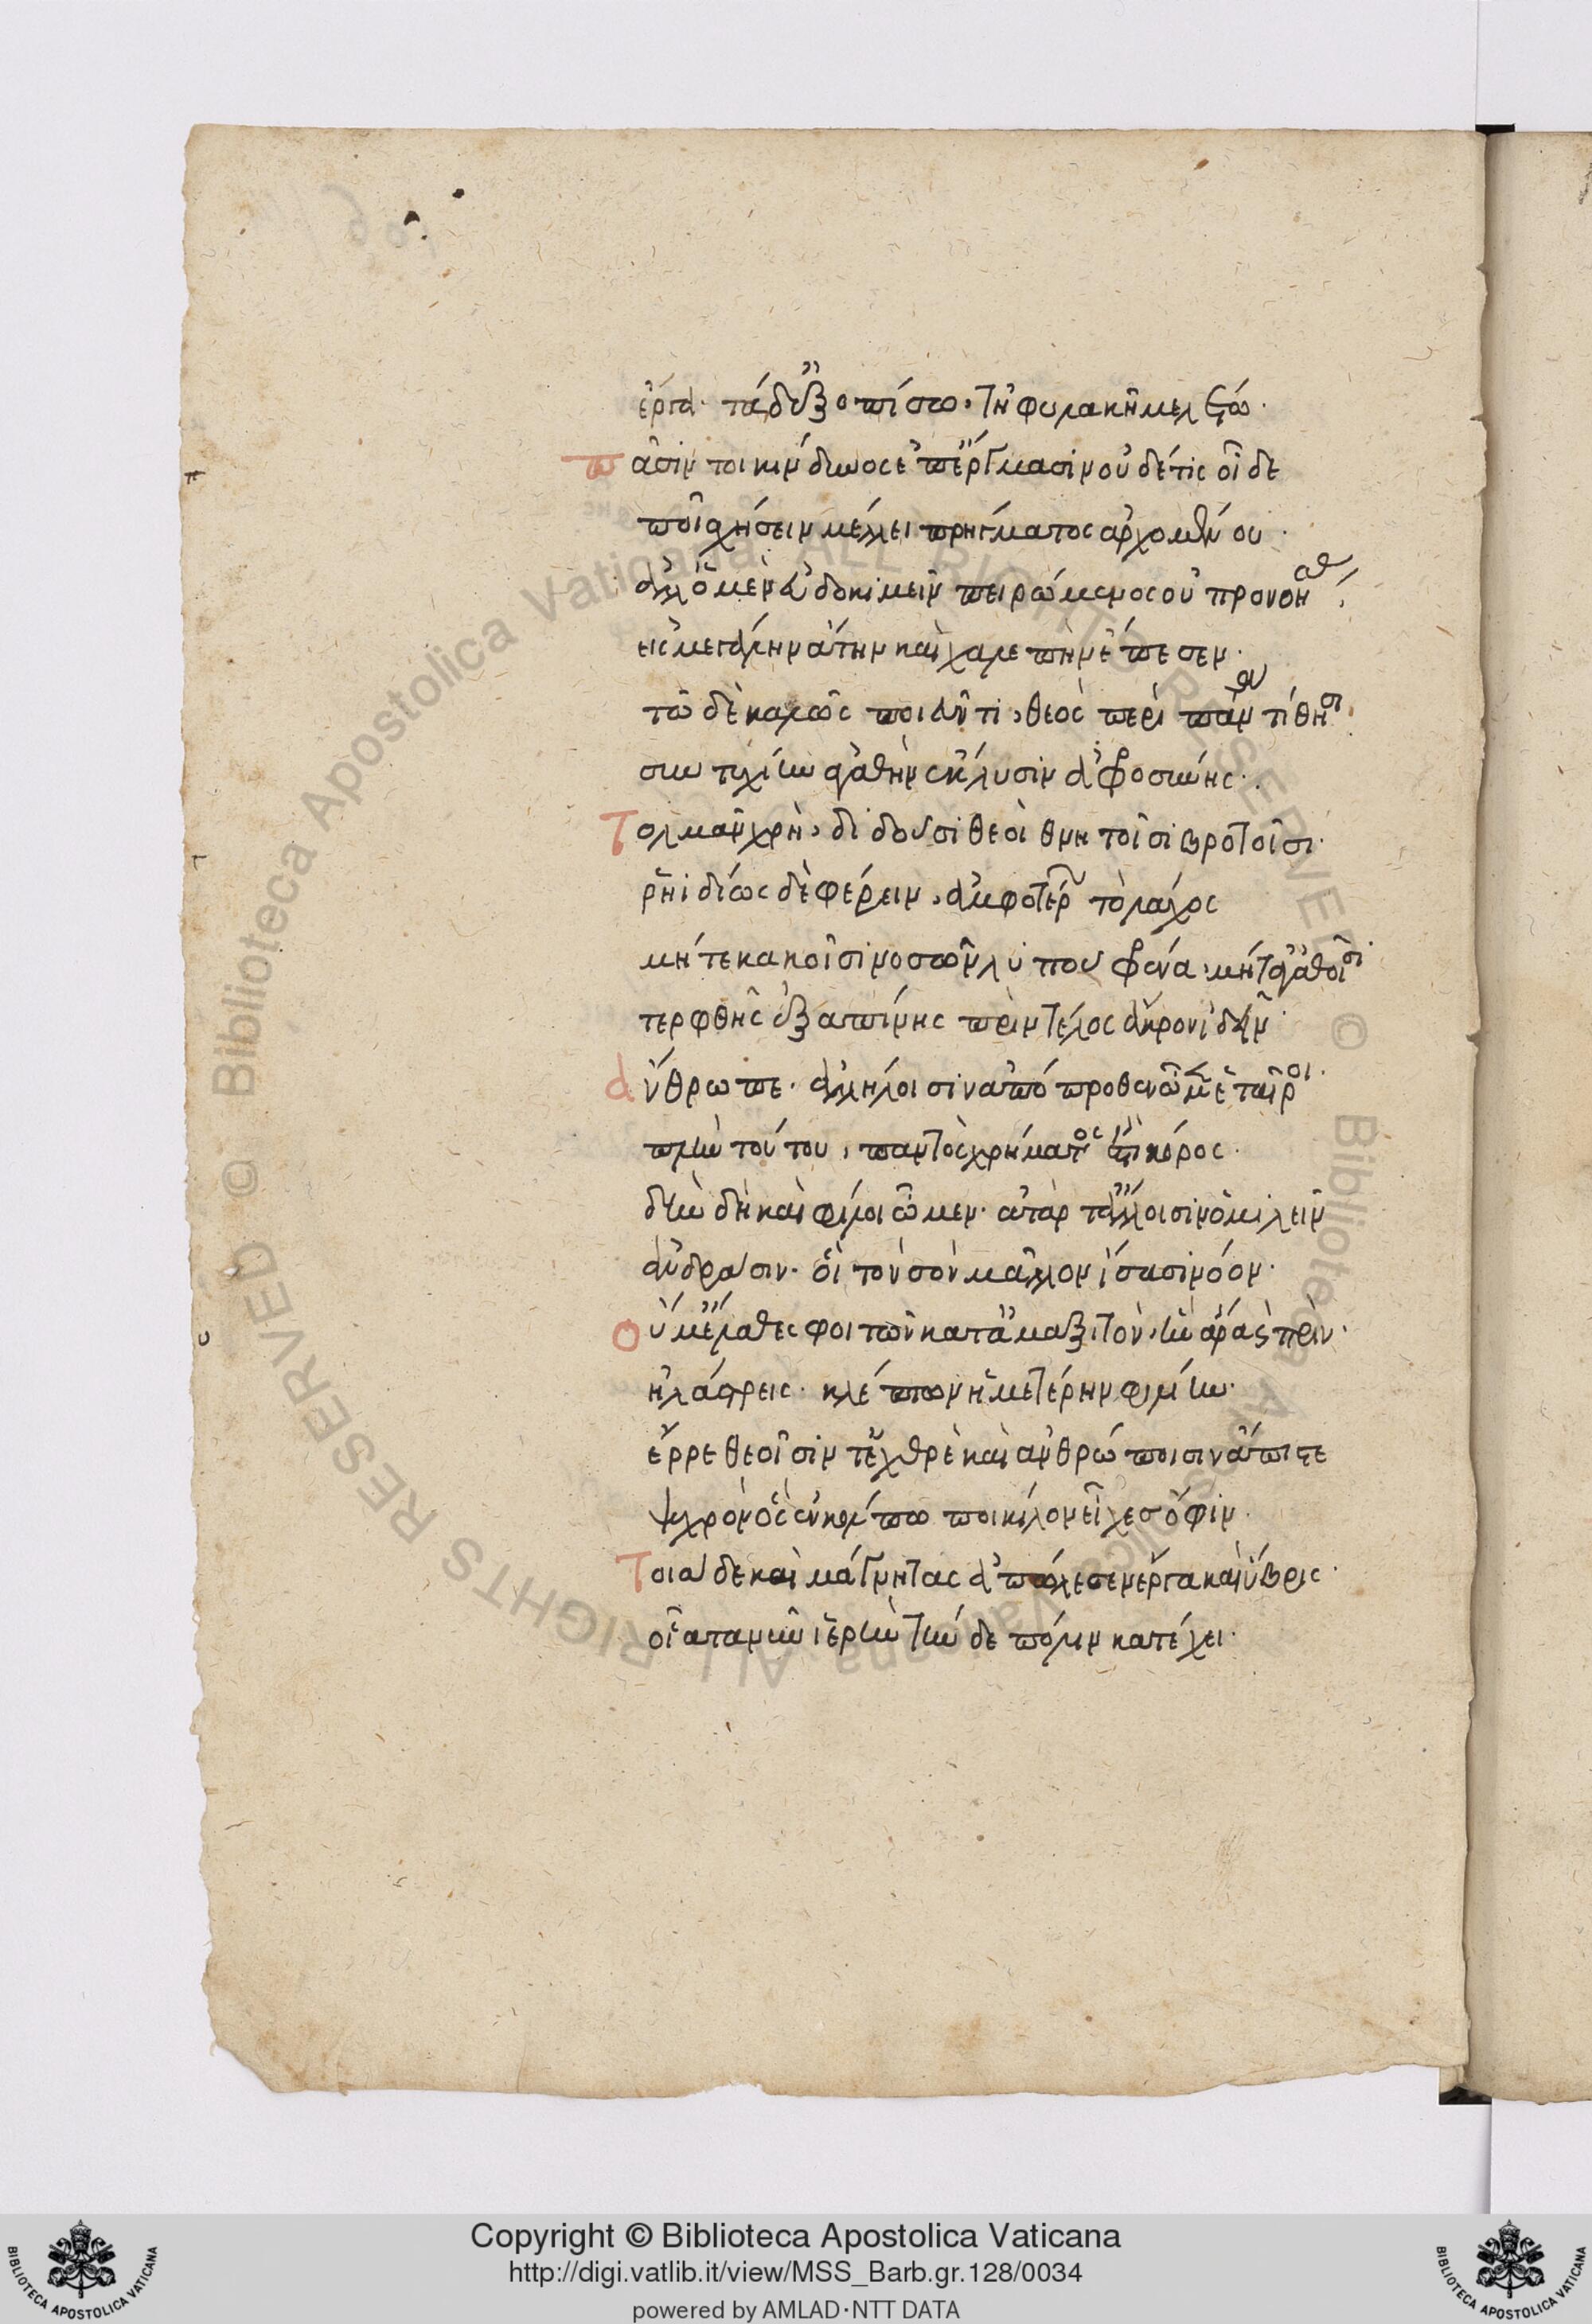 ἔργα· τὰ δ' ἐξοπίσω, τῇ φυλακῇ μελέτω·
πᾶσίν τοι κίνδυνος ἐπ' ἔργμασιν οὐδέ τις οἶδε
ποῖ σχήσειν μέλλει πρήγματος ἀρχομένου·
ἀλλ' ὁ μὲν εὐδοκιμεῖν πειρώμενος οὐ προνοήσας
εἰς μεγάλην ἄτην καὶ χαλεπὴν ἔπεσεν·
τῷ δὲ καλῶς ποιεῦντι, θεὸς περὶ πάντα τίθησι
συντυχίην ἀγαθὴν ἔκλυσιν ἀφροσύνης·
Τολμᾶν χρὴ, διδοῦσι θεοὶ θνητοῖσι βροτοῖσι·
ῥηϊδίως δὲ φέρειν, ἀμφοτέρων τὸ λάχος
μήτε κακοῖσι νοσῶν λυποῦ φρένα, μήτ' ἀγαθοῖσι
τερφθῇς ἐξαπίνης πρὶν τέλος ἄκρον ἰδεῖν·
ἄνθρωπε· ἀλλήλοισιν ἀπόπροθεν ὦμεν ἑταῖροι·
πλὴν τούτου, παντὸς χρήματός ἐστι κόρος·
δὴν δὴ καὶ φίλοι ὦμεν· ἀτὰρ τ' ἄλλοισιν ὁμίλειν
ἀνδράσιν· οἳ τὸν σὸν μᾶλλον ἴσασι νόον·
Οὔ μ' ἔλαθες φοιτῶν κατ' ἀμαξιτὸν, ἣν ἄρα καὶ πρὶν·
ἠλάστρεις· κλέπτων ἡμετέρην φιλίην·
ἔρρε θεοῖσίν τ' ἐχθρὲ καὶ ἀνθρώποισιν ἄπιστε
ψυχρὸν ὃς ἐν κόλπῳ ποικίλον εἶχες ὄφιν·
Τοιάδε καὶ Μάγνητας ἀπώλεσεν ἔργα καὶ ὕβρις·
οἷα τὰ νῦν ἱερὴν τήνδε πόλιν κατέχει·
Copyright © Biblioteca Apostolica Vaticana
http://digi.vatlib.it/view/MSS_Barb.gr.128/0034
powered by AMLAD·NTT DATA